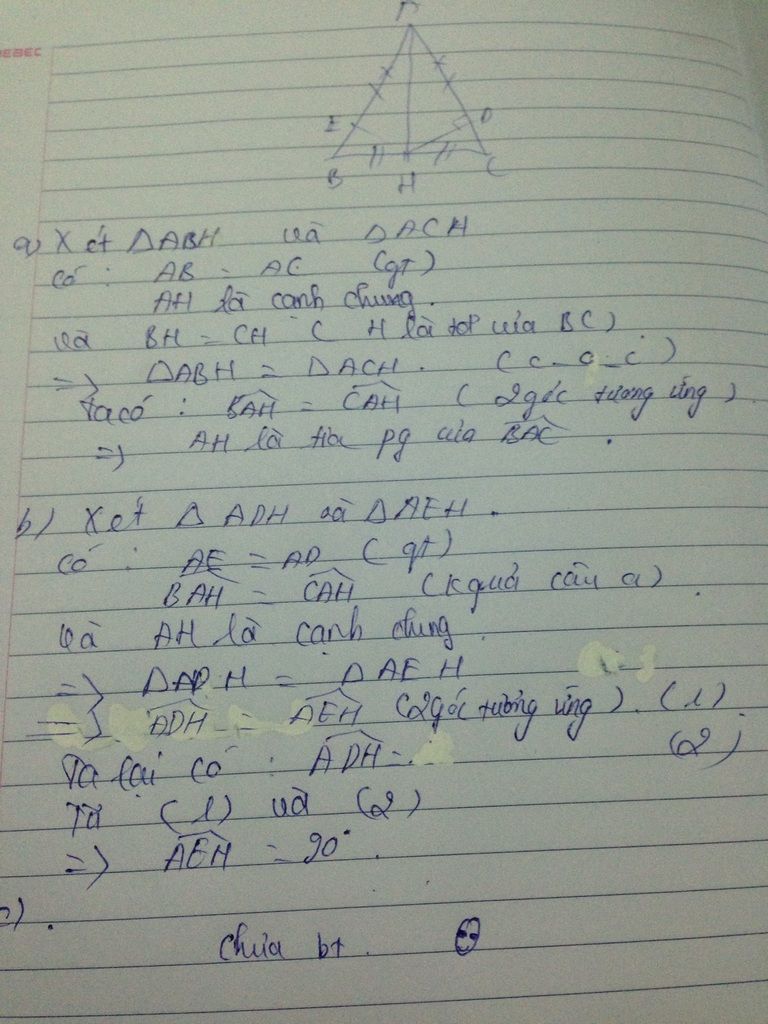 EBEC
A
E
D
B
H
C
a) Xét ΔABH và ΔACH
có : AB = AC (gt)
AH là cạnh chung.
và BH = CH ( H là tđ' của BC)
=> ΔABH = ΔACH. (c-c-c)
Ta có : BAH = CAH ( 2 góc tương ứng ).
=> AH là tia pg của BAC .
b) Xét Δ ADH và ΔAEH .
có : AE = AD ( gt)
BAH = CAH (K quả câu a) .
và AH là cạnh chung .
=> ΔADH = ΔAEH
=> ADH = AEH (2 góc tương ứng ) . (1)
Ta lại có : ADH = (2)
Từ (1) và (2)
=> AEH = 90° .
c) .
Chưa bt .